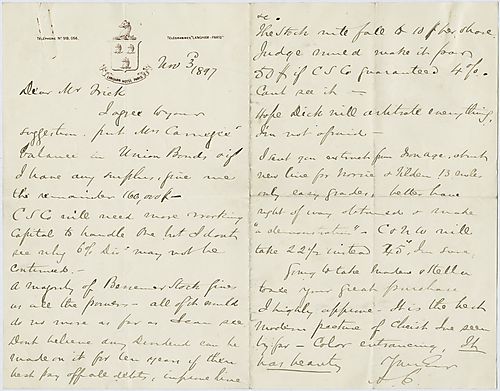 TELEPHONE Nº
TELEGRAMMES "LANGHAM-PARIS"
LANGHAM HOTEL PARIS
Nov 3 1897
Dear Mr Frick
I agree to your
suggestion. put Mrs Carnegie's
balance in Union Bonds & if
I have any surplus, give me
the remainder 160,000$ —
C S Co will need more working
Capital to handle Ore but I don't
see why 6% Div' may not be
continued —
A majority of Bessemer Stock gives
us all the powers — all of it would
do no more as far as I can see
Dont believe any Dividend can be
made on it for ten years if then
best pay off all debts, improve line
&c.
The Stock will fall to 10$ per share
Judge Reed make it par
50$ if C S Co guaranteed 4%.
Cant see it —
Hope Dick will arbitrate everything,
I'm not afraid —
I sent you extract from Iron age, about
new line for Norrie & Tilden 13 miles
only easy grades, better have
right of way obtained & make
"a demonstration" — C & N W will
take 22½ instead 45¢ I'm sure,
Going to take Lauder & Stella
to see your great purchase
I highly approve. It is the best
modern picture of Christ I've seen
by far — Color entrancing, It
has beauty
Yours Ever
A C